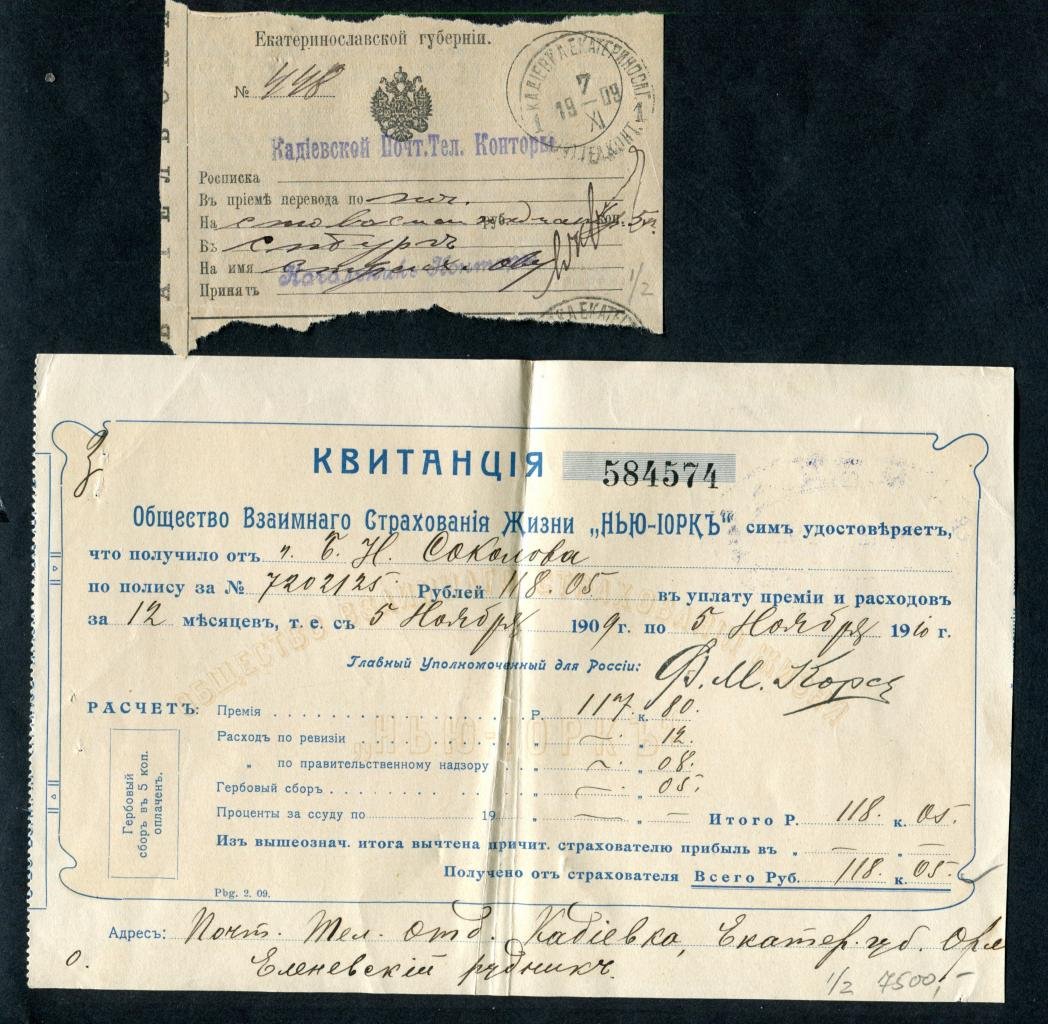 Екатеринославской губерніи.
№ 448
КАДІЕВКА ЕКАТЕРИНОСЛ.
7
19 09
XI
1 1
ПОЧ. ТЕЛ. КОНТ.
Кадіевской Почт.Тел. Конторы
Росписка
Въ пріемѣ перевода по
На сто восемнадцать руб. коп. 5
Въ Спбургъ
На имя
Начальникъ Конторы
Принятъ
1/2
КА ЕКАТЕ
З
КВИТАНЦІЯ 584574
Общество Взаимнаго Страхованія Жизни „НЬЮ-ІОРКЪ“ симъ удостовѣряетъ,
что получило отъ г. Б. Н. Соколова
по полису за № 7202125. Рублей 118.05 въ уплату преміи и расходовъ
за 12 мѣсяцевъ, т. е. съ 5 Ноября 1909 г. по 5 Ноября 1910 г.
Главный Уполномоченный для Россіи: Ф. М. Корсъ
РАСЧЕТЪ: Премія Р. 117. к. 80.
Расходъ по ревизіи „ ~ „ 12.
„ по правительственному надзору „ ~ „ 08.
Гербовый сборъ „ ~ „ 05.
Проценты за ссуду по 19 „ — „ — Итого Р. 118. к. 05.
Изъ вышеознач. итога вычтена причит. страхователю прибыль въ „ — „ —
Получено отъ страхователя Всего Руб. 118. к. 05.
Гербовый
сборъ въ 5 коп.
оплаченъ.
Pbg. 2. 09.
ОБЩЕСТВО ВЗАИМНАГО СТРАХОВАНІЯ ЖИЗНИ
„НЬЮ-ІОРКЪ“
Адресъ: Почт. Тел. отд. Кадіевка, Екатер. губ. Орл
о. Еленевскій рудникъ.
1/2 7500,-